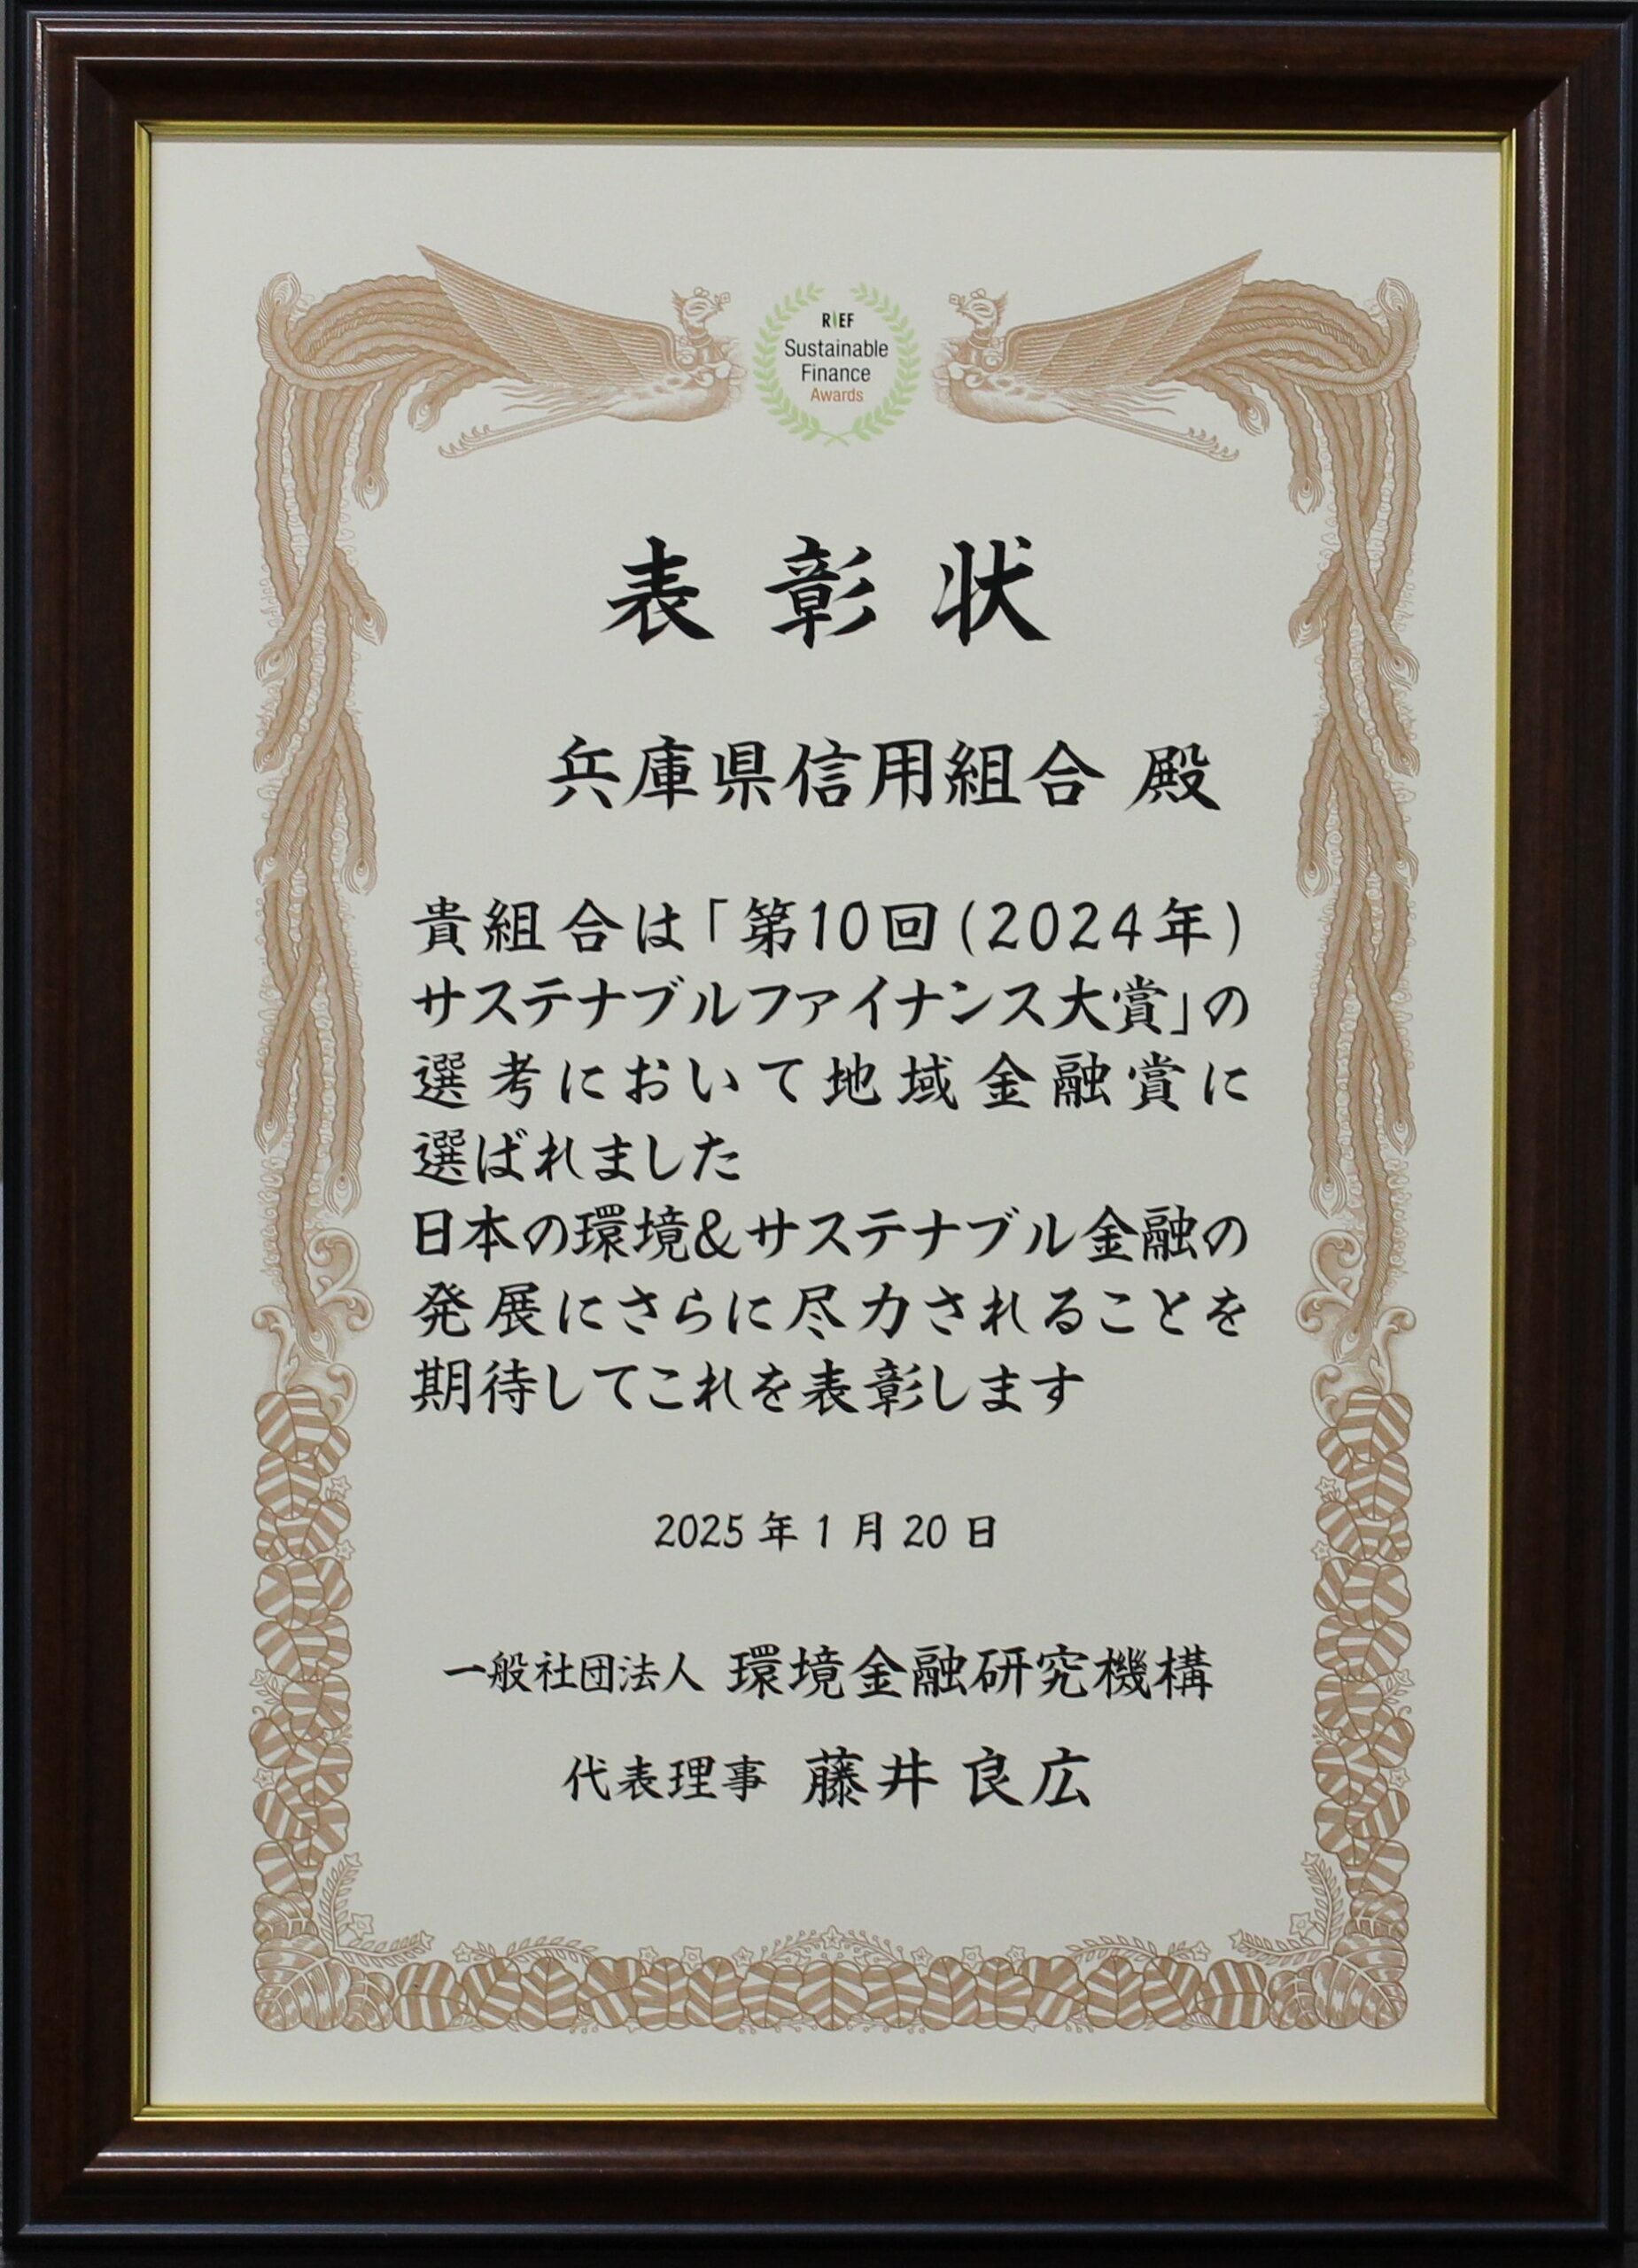 RIEF
Sustainable
Finance
Awards
表彰状
兵庫県信用組合 殿
貴組合は「第10回(2024年)
サステナブルファイナンス大賞」の
選考において地域金融賞に
選ばれました
日本の環境&サステナブル金融の
発展にさらに尽力されることを
期待してこれを表彰します
2025年1月20日
一般社団法人 環境金融研究機構
代表理事 藤井良広